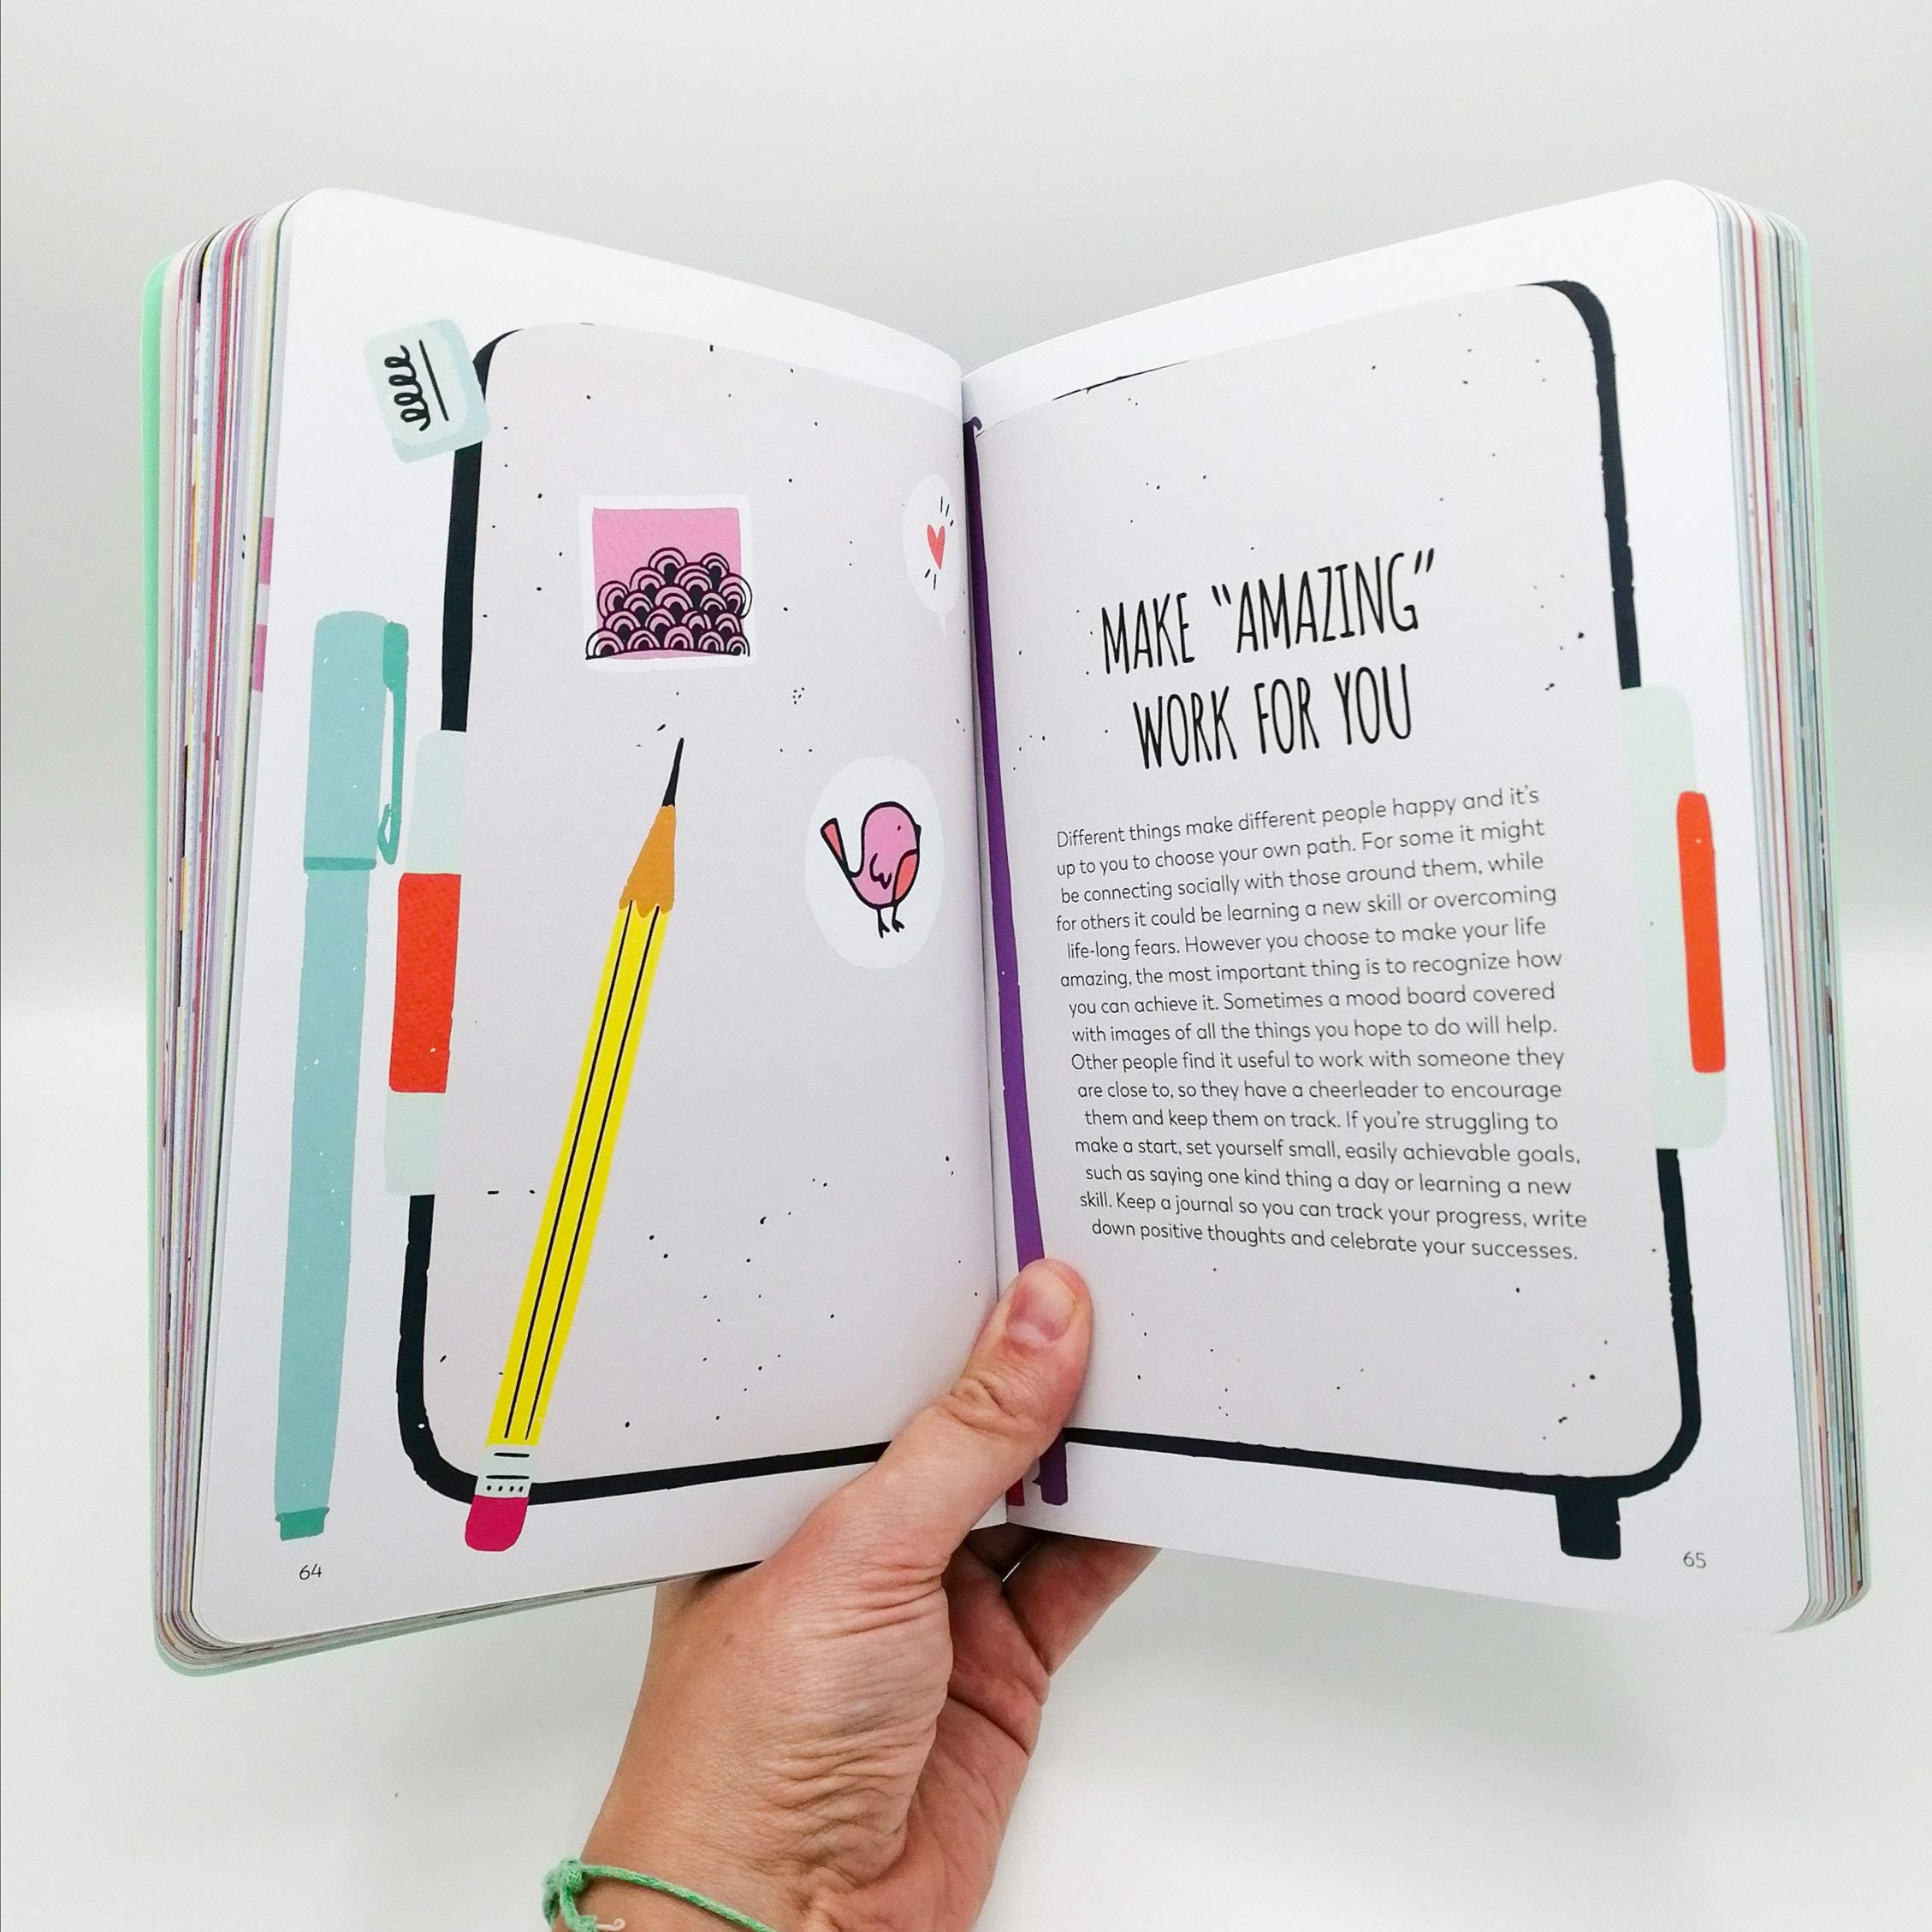 MAKE “AMAZING”
WORK FOR YOU
Different things make different people happy and it’s
up to you to choose your own path. For some it might
be connecting socially with those around them, while
for others it could be learning a new skill or overcoming
life-long fears. However you choose to make your life
amazing, the most important thing is to recognize how
you can achieve it. Sometimes a mood board covered
with images of all the things you hope to do will help.
Other people find it useful to work with someone they
are close to, so they have a cheerleader to encourage
them and keep them on track. If you’re struggling to
make a start, set yourself small, easily achievable goals,
such as saying one kind thing a day or learning a new
skill. Keep a journal so you can track your progress, write
down positive thoughts and celebrate your successes.
64
65